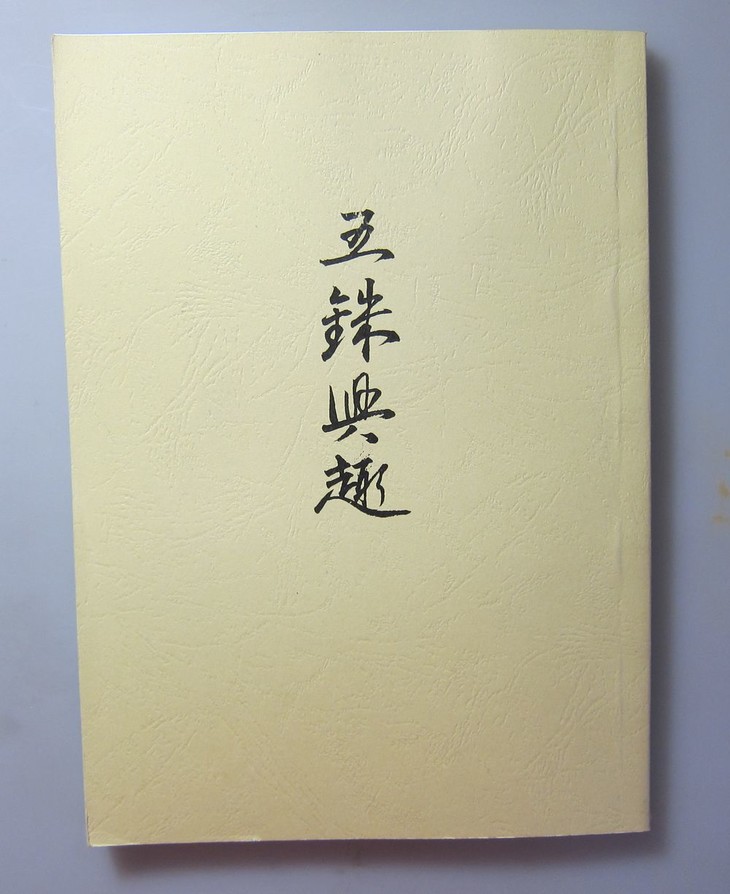 五銖興趣